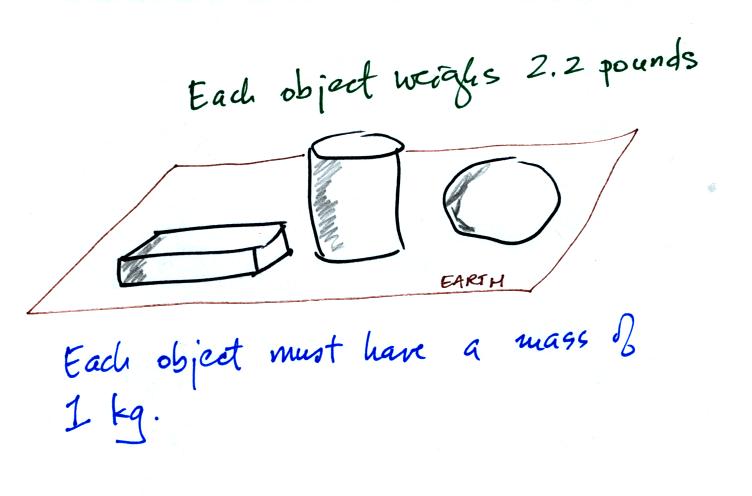 Each object weighs 2.2 pounds
EARTH
Each object must have a mass of
1 kg.